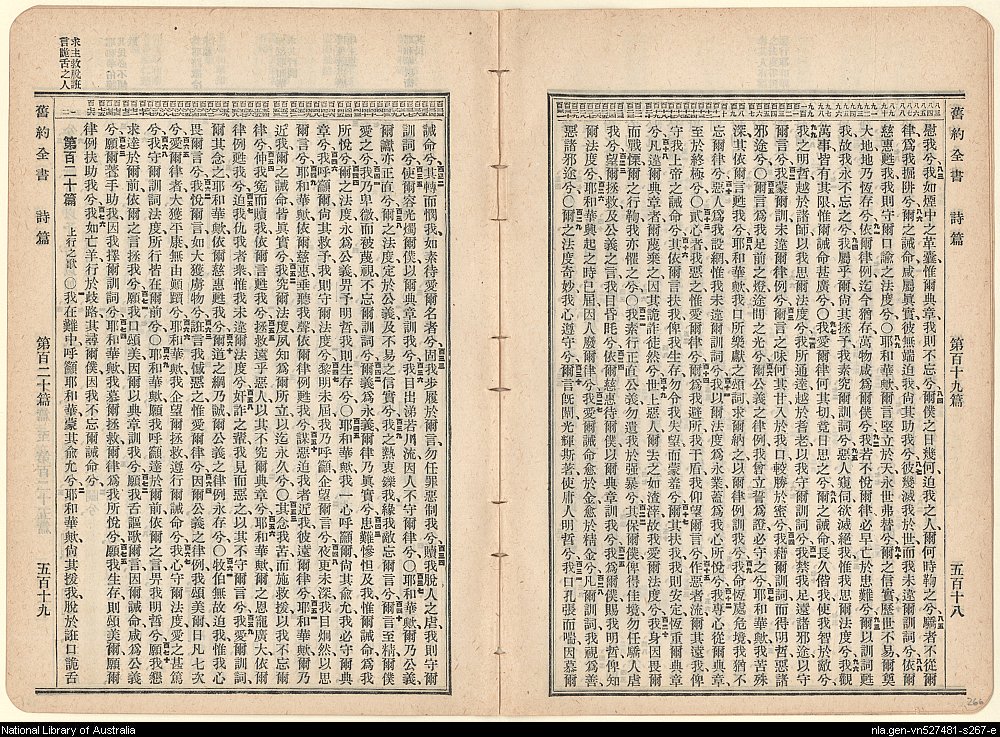 舊約全書 詩篇 第百十九篇 五百十八
慰我兮、我如煙中之革囊、惟爾典章、我則不忘兮、爾僕之日幾何、迫我之人、爾何時鞫之兮、驕者不從爾
律、爲我掘阱兮、爾之誡命、咸屬眞實、彼無端迫我、尙其助我兮、彼幾滅我於世、而我未違爾訓詞兮、依爾
慈惠甦我、我則守爾口諭之法度兮、〇耶和華歟、爾言堅立於天、永世弗替兮、爾之信實、歷世不易、爾奠
大地、地乃恆存兮、依爾律例、迄今猶存、萬物咸爲爾僕兮、我若不悅爾律、必早亡於患難兮、爾以訓詞甦
我、故我永不忘之兮、我屬乎爾、尙其拯予、我素究爾訓詞兮、惡人窺伺、欲滅絕我、惟我思爾法度兮、我觀
萬事、皆有其限、惟爾誡命甚廣兮、〇我愛爾律何其切、竟日思之兮、爾之誡命、長久偕我、使我智於敵兮、
我之明哲、越於諸師、以我思爾法度兮、我所通達、越於耆老、以我守爾訓詞兮、我禁我足、遠諸邪途、以守
爾言兮、我未違爾律例、以爾訓我兮、爾言之味、何其甘、入於我口、較勝於蜜兮、我藉爾訓詞、而得明哲、惡諸
邪途兮、〇爾言爲我足前之燈、途間之光兮、爾公義之律例、我曾立誓爲證、必守之兮、耶和華歟、我苦殊
深、其依爾言甦我兮、耶和華歟、我口所樂獻之頌詞、求爾納之、以爾律例訓我兮、我命恆處危境、我猶不
忘爾律兮、惡人爲我設網、惟我未違爾訓詞兮、我以爾法度永爲業、蓋爲我心所悅兮、我專心從爾典章、
至於終極兮、〇貳心者我惡之、惟爾律、我愛之兮、爾爲我避所、我干盾、我仰望爾言兮、作惡者流、爾其遠我、俾
守我上帝之誡命兮、其依爾言扶我、俾我生存、勿令我失望而蒙羞兮、爾其扶我、我則安定、恆重爾典章
兮、凡違爾典章者、爾蔑棄之、因其詭詐徒然兮、世上惡人、爾去之如渣滓、故我愛爾法度兮、我身因畏爾
而戰慄、爾之行鞫、我亦懼之兮、〇我素行正直公義、勿遺我於強暴兮、其保爾僕、俾得佳境、勿任驕人虐
我兮、望爾拯救、及公義之言、我目昏眊兮、依爾慈惠待爾僕、以爾典章訓我兮、我爲爾僕、賜我明哲、俾知
爾法度兮、耶和華興起之時已屆、因人廢爾律兮、我愛爾誡命、愈於金、愈於精金兮、凡爾訓詞、我視爲善、
惡諸邪途兮、〇爾之法度奇妙、我心遵守兮、爾言旣闢、光輝斯著、使庸人明哲兮、我口孔張而喘、因慕爾
求主救脫誑
言詭舌之人
舊約全書 詩篇 第百二十篇 五百十九
誡命兮、其轉而憫我、如素待愛爾名者兮、固我步履於爾言、勿任罪惡制我兮、贖我脫人之虐、我則守爾
訓詞兮、使爾容光燭爾僕、以爾典章訓我兮、我目出涕若川流、因人不守爾律兮、〇耶和華歟、爾乃公義、
爾讞亦正直兮、爾之法度、定於公義、及不易之信實兮、我之熱衷鑠我、緣我敵忘爾言兮、爾言至精、爾僕
愛之兮、我乃卑微、而被蔑視、不忘爾訓詞兮、爾義爲永義、爾律乃眞實兮、患難慘怛及我、惟爾誡命爲我
所悅兮、爾之法度、永爲公義、畀予明哲、我則生存兮、〇耶和華歟、我一心呼籲、爾尙其俞允、我必守爾典
章兮、我呼籲爾、尙其救予、我則守爾法度兮、黎明未屆、我乃呼籲、企望爾言兮、夜更未深、我目炯然、以思
爾言兮、耶和華歟、依爾慈惠、垂聽我聲、依爾律例甦我兮、謀惡迫我者近我、彼遠爾律兮、耶和華歟、爾乃
近我、爾之誡命皆眞實兮、我究爾法度、夙知爲爾所立、以迄永久兮、〇其念我苦而施救援、以我不忘爾
律兮、伸我冤而贖我、依爾言甦我兮、拯救遠乎惡人、以其不究爾典章兮、耶和華歟、爾之恩寵廣大、依爾
律例甦我兮、迫我仇我者衆、惟我未違爾法度兮、奸詐之輩、我見而惡之、以其不守爾言兮、我愛爾訓詞、
爾其念之、耶和華歟、依爾慈惠甦我兮、爾道之綱、乃誠、爾公義之律例永存兮、〇牧伯無故迫我、惟我心
畏爾言兮、我悅爾言、如大獲虜物兮、誑言我憾惡之、惟愛爾律兮、因爾公義之律例、我頌美爾、日凡七次
兮、愛爾律者、大獲平康、無由顚躓兮、耶和華歟、我企望爾拯救、遵行爾誡命兮、我心守爾法度、愛之甚篤
兮、我守爾訓詞法度、所行皆在爾前兮、〇耶和華歟、願我呼籲達於爾前、依爾之言、畀我明哲兮、願我懇
求達於爾前、依爾之言拯我兮、願我口頌美、因爾以典章訓我兮、願我舌謳歌爾言、因爾誡命咸爲公義
兮、願爾著手助我、因我擇爾訓詞兮、耶和華歟、我慕爾拯救、爾律爲我所悅兮、願我生存、則頌美爾、願爾
律例扶助我兮、我如亡羊、行於歧路、其尋爾僕、因我不忘爾誡命兮、
第百二十篇 上行之歌〇我在難中、呼籲耶和華、蒙其俞允兮、耶和華歟、尙其援我、脫於誑口詭舌
National Library of Australia
nla.gen-vn527481-s267-e
266